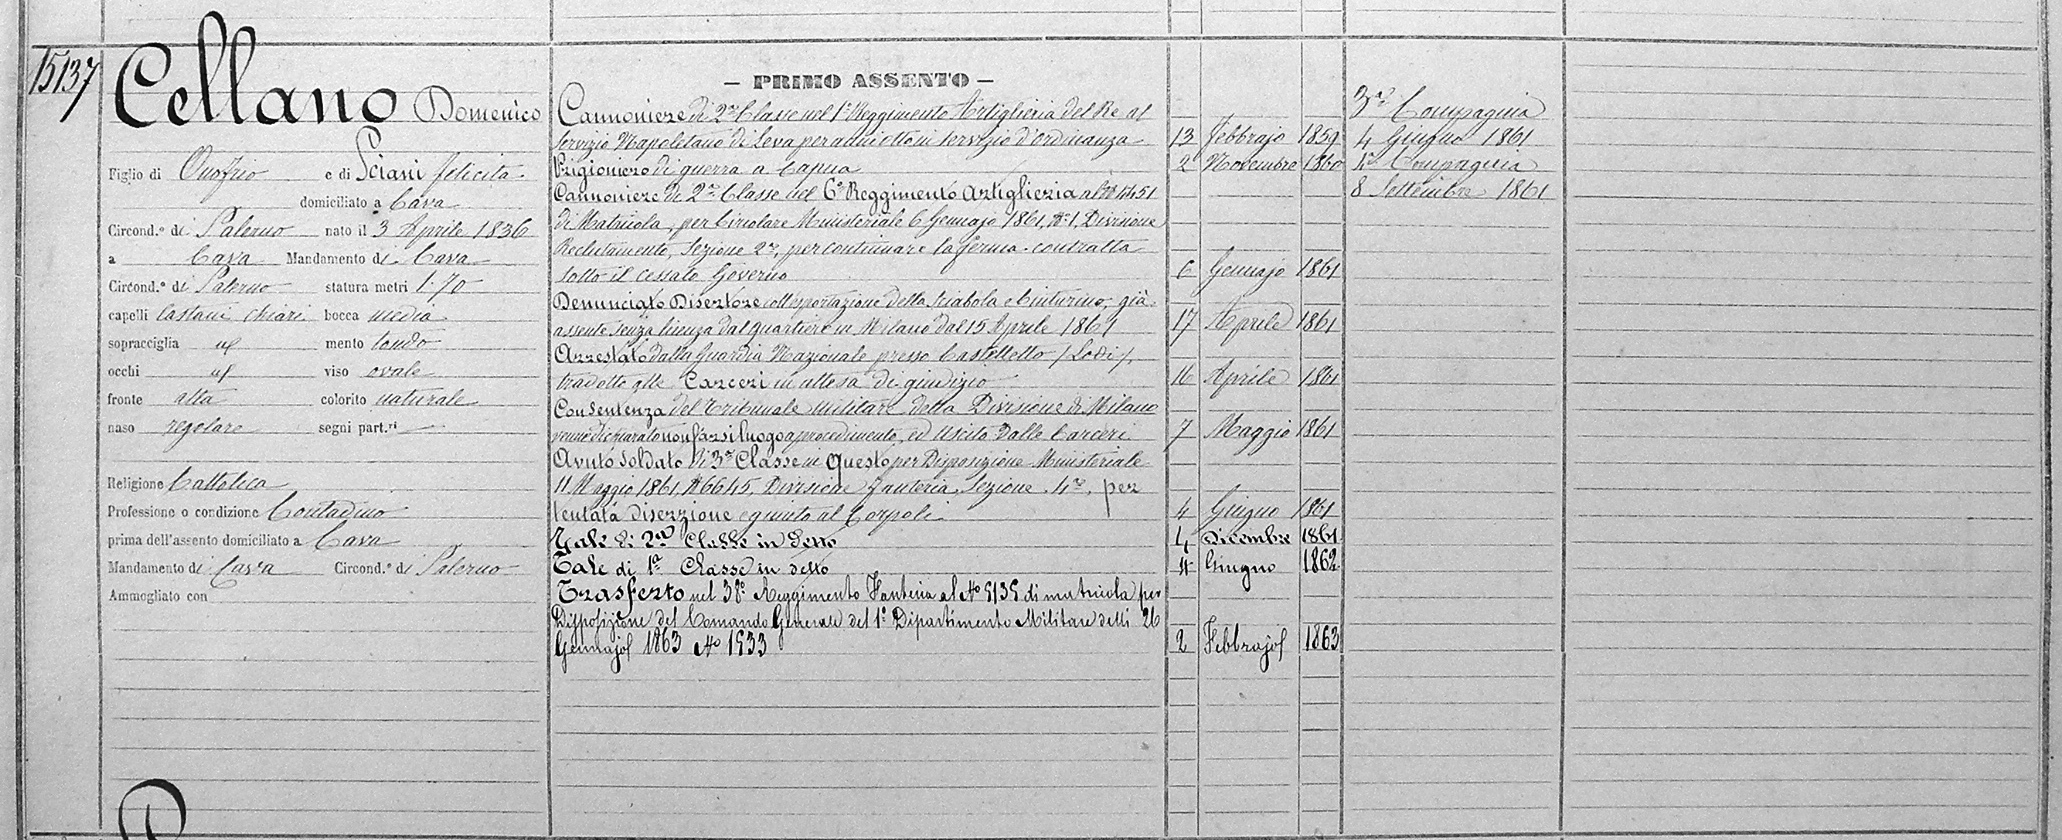 15137
Cellano Domenico
Figlio di Onofrio e di Sciani Felicita
domiciliato a Cava
Circond.º di Salerno nato il 3 Aprile 1836
a Cava Mandamento di Cava
Circond.º di Salerno statura metri 1.70
capelli Castani chiari bocca media
sopracciglia id mento tondo
occhi id viso ovale
fronte alta colorito naturale
naso regolare segni part.ri
Religione Cattolica
Professione o condizione Contadino
prima dell'assento domiciliato a Cava
Mandamento di Cava Circond.º di Salerno
Ammogliato con
— PRIMO ASSENTO —
Cannoniere di 2ª Classe nel 1º Reggimento Artiglieria del Re al
servizio Napoletano di Leva per ammesso in servizio d'ordinanza 13 Febbrajo 1859
Prigioniero di guerra a Capua 2 Novembre 1860
Cannoniere di 2ª Classe nel 6º Reggimento Artiglieria al Nº 4451
di Matricola, per Circolare Ministeriale 6 Gennajo 1861, Nº 1, Divisione
Reclutamento, Sezione 2ª, per continuare la ferma contratta
sotto il cessato Governo 6 Gennajo 1861
Denunciato Disertore coll'esportazione della sciabola e Cinturino, già
assente senza licenza dal quartiere in Milano dal 15 Aprile 1861 17 Aprile 1861
Arrestato dalla Guardia Nazionale presso Castelletto /Lodi/,
tradotto alle Carceri in attesa di giudizio 16 Aprile 1861
Con Sentenza del Tribunale Militare della Divisione di Milano
venne dichiarato non farsi luogo a procedimento, ed Uscito dalle Carceri 7 Maggio 1861
Avuto Soldato di 3ª Classe in Questo per Disposizione Ministeriale
11 Maggio 1861, Nº 6645, Divisione Fanteria, Sezione 4ª, per
tentata diserzione e giunto al Corpo li 4 Giugno 1861
Tale di 2ª Classe in detto 4 Dicembre 1861
Tale di 1ª Classe in detto 4 Giugno 1862
Trasferto nel 38º Reggimento Fanteria al Nº 5135 di matricola per
Disposizione del Comando Generale del 1º Dipartimento Militare delli 26
Gennajo 1863 Nº 1533 2 Febbrajo 1863
3ª Compagnia
4 Giugno 1861
4ª Compagnia
8 Settembre 1861